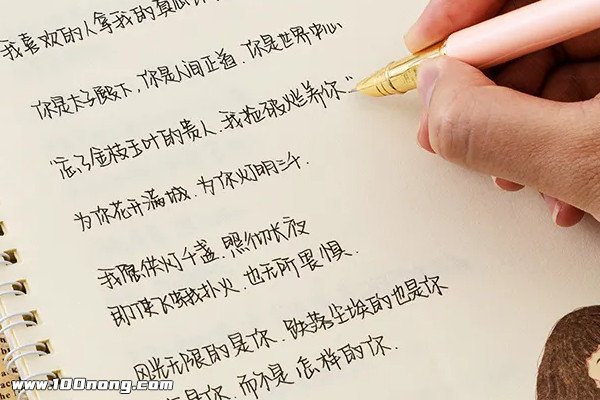 我喜欢的人拿我的真心
你是太子殿下,你是人间正道,你是世界中心
“忘了金枝玉叶的贵人,我捡破烂养你”
为你花开满城,为你灯明三千.
我愿供灯千盏,照彻长夜
即使飞蛾扑火,也无所畏惧.
风光无限的是你,跌落尘埃的也是你
是你,而不是怎样的你.
www.100nong.com